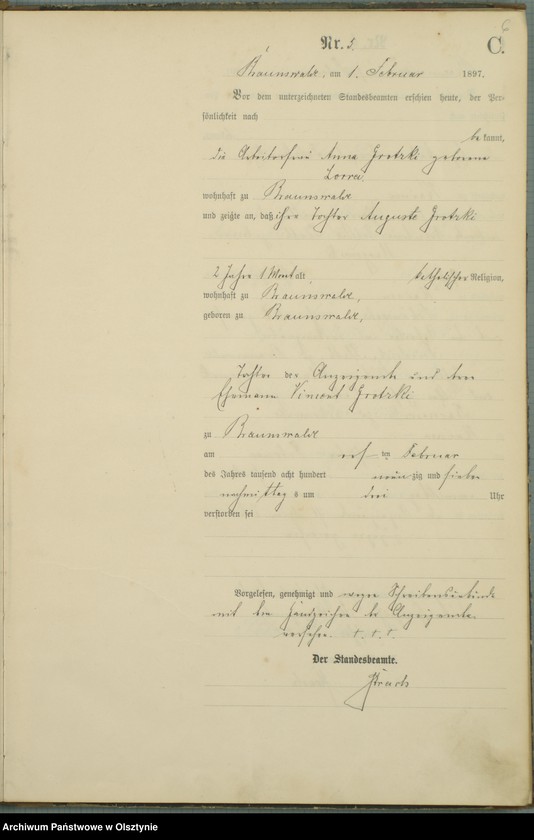 6
Nr. 5.
C.
Braunswalde, am 1. Februar 1897.
Vor dem unterzeichneten Standesbeamten erschien heute, der Per-
sönlichkeit nach
be kannt,
die Arbeiterfrau Anna Grotzki geborene
Lorra
wohnhaft zu Braunswalde
und zeigte an, daß ihre Tochter Auguste Grotzki
2 Jahre 1 Monat alt katholischer Religion,
wohnhaft zu Braunswalde,
geboren zu Braunswalde,
Tochter der Anzeigende und dem
Ehemann Vincent Grotzki
zu Braunswalde
am ten Februar
des Jahres tausend acht hundert neun zig und sieben
nachmittags um drei Uhr
verstorben sei
Vorgelesen, genehmigt und wegen Schreibensunkunde
mit dem Handzeichen der Anzeigende
versehen. † † †
Der Standesbeamte.
Archiwum Państwowe w Olsztynie